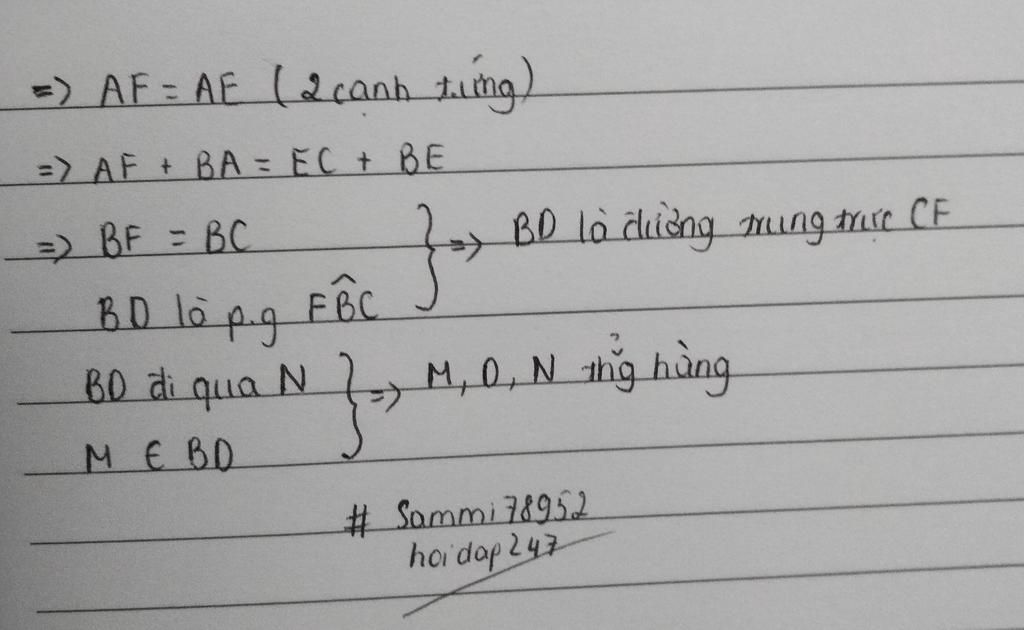 => AF = AE (2 cạnh tứng)
=> AF + BA = EC + BE
=> BF = BC } => BD là đường trung trực CF
BD là p.g FB̂C
BD đi qua N } => M, D, N thẳng hàng
M ∈ BD
# Sammi78952
hoidap247